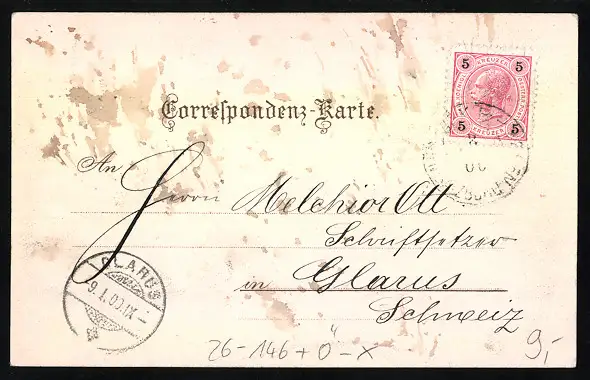 Correspondenz-Karte.
5 KREUZER 5
5 KREUZER 5
An
Herrn Melchior Ott
Schriftsetzer
in Glarus
Schweiz
GLARUS
9.I.00.IX
26-146+Ö-X
9,-